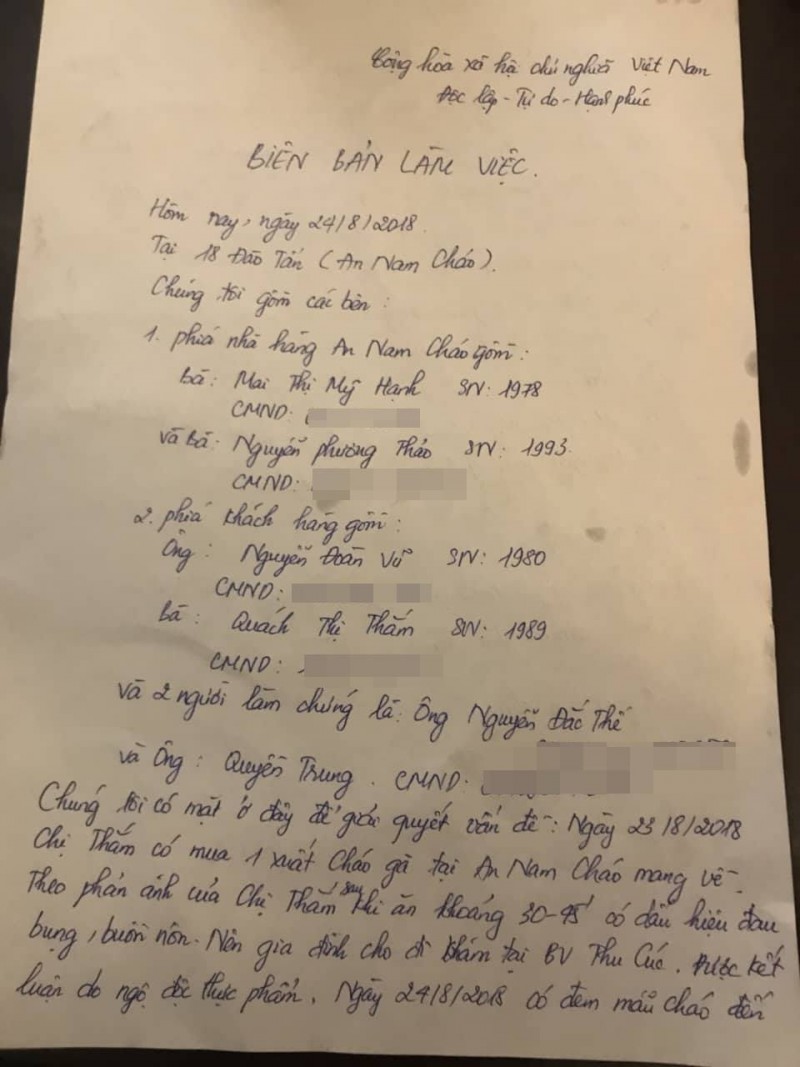 Cộng hòa xã hội chủ nghĩa Việt Nam
Độc lập - Tự do - Hạnh phúc
BIÊN BẢN LÀM VIỆC.
Hôm nay, ngày 24/8/2018.
Tại 18 Đào Tấn (An Nam Cháo).
Chúng tôi gồm các bên:
1. phía nhà hàng An Nam Cháo gồm:
Bà: Mai Thị Mỹ Hạnh SN: 1978
CMND:
và Bà: Nguyễn phương Thảo SN: 1993.
CMND:
2. phía khách hàng gồm:
Ông: Nguyễn Đoàn Vũ SN: 1980
CMND:
Bà: Quách Thị Thắm SN: 1989
CMND:
và 2 người làm chứng là: Ông Nguyễn Đắc Thế
và Ông: Quyền Trung. CMND:
Chúng tôi có mặt ở đây để giải quyết vấn đề: Ngày 23/8/2018
Chị Thắm có mua 1 xuất Cháo gà tại An Nam Cháo mang về.
Theo phản ánh của Chị Thắm sau khi ăn khoảng 30-45' có dấu hiệu đau
bụng, buồn nôn. Nên gia đình cho đi khám tại BV Thu Cúc. Được kết
luận do ngộ độc thực phẩm. Ngày 24/8/2018 có đem mẫu cháo đến